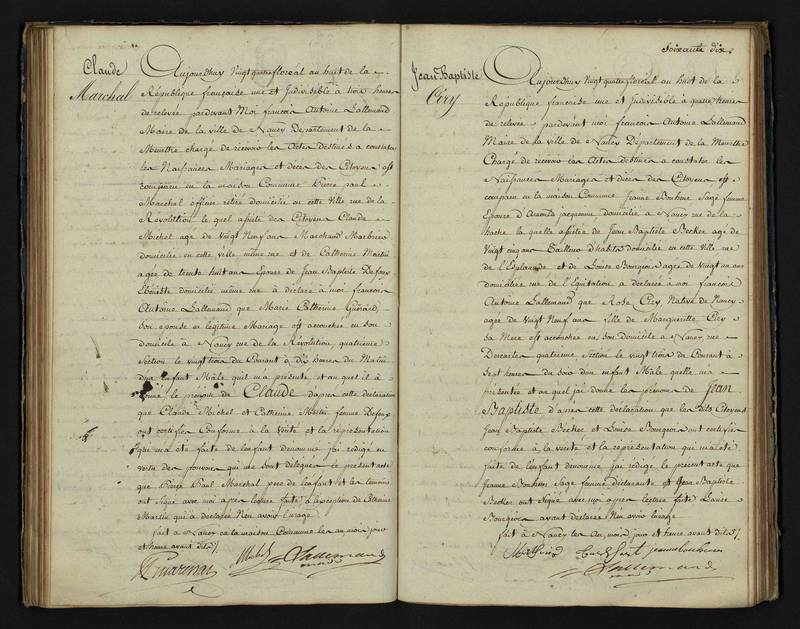 Claude
Marchal
Aujourdhuy vingt quatre floréal an huit de la
République française une et Indivisible à trois heures
de relevée pardevant Moi françois Antoine Lallemand
Maire de la ville de Nancy Departement de la
Meurthe chargé de recevoir les Actes destinés a constater
les Naissances, Mariages et décès des Citoyens est
comparu en la maison Commune Pierre paul
Marchal officier retiré domicilié en cette Ville rue de la
Révolution le quel assisté des Citoyens Claude
Michel agé de vingt Neuf ans Marchand
domicilié en cette ville même rue et de Catherine Martin
agée de trente huit ans Epouse de Jean Baptiste Defaux
Ebéniste domicilié même rue à déclaré à moi françois
Antoine Lallemand que Marie Catherine Guérard,
Son epouse en légitime Mariage est accouchée en son
domicile à Nancy rue de la Révolution, quatrième
Section le vingt trois du Courant à dix heures du Matin
d'un Enfant Mâle quil m'a présenté et au quel il à
donné le prénom de Claude dapres cette déclaration
que Claude Michel et Catherine Martin femme Defaux
ont certifiée Conforme à la Vérité et la représentation
qui m'a été faite de lenfant denommé jai rédigé en
vertu des pouvoirs qui me sont délégués le present acte
que Pierre Paul Marchal pere de lenfant et les temoins
ont Signé avec moi apres lecture faite, à l'exception de Catherine
Martin qui a declaree N'en avoir lusage
fait à Nancy en la maison Commune les an mois jour
et heure avant dits
Michel Lallemand
maire
soixante dix
Jean Baptiste
Ciry
Aujourdhuy Vingt quatre floréal an huit de la
République française une et Indivisible à quatre heures
de relevée pardevant moi françois Antoine Lallemand
Maire de la ville de Nancy Département de la Meurthe
Chargé de recevoir les Actes destinés a constater les
Naissances Mariages et décès des Citoyens est
comparu en la maison Commune Jeanne Bonheur Sage femme
Epouse domiciliée a Nancy rue de la
hache la quelle assistée de Jean Baptiste Becker agé de
Vingt cinq ans Tailleur d'habits domicilié en cette ville rue
de l'Esplanade et de Louise Bourgeois agée de vingt un ans
domiciliée rue de l'Equitation a déclaré à moi françois
Antoine Lallemand que Rose Ciry, Native de Nancy
agée de Vingt Neuf ans fille de Marguerite Ciry
sa Mere est accouchée en son domicile a Nancy rue
Descartes quatrieme Section le vingt trois du Courant à
Sept heures du Soir d'un enfant Mâle quelle m'a
présenté et au quel j'ai donné les prénoms de Jean
Baptiste dapres cette déclaration que les dits Citoyens
Jean Baptiste Becker et Louise Bourgeois ont certifiée
conforme à la vérité et la répresentation qui m'a été
faite de lenfant denommé jai redigé le present acte que
Jeanne Bonheur Sage femme declarante et Jean Baptiste
Becker ont Signé avec moi apres lecture faite Louise
Bourgeois ayant déclarée N'en avoir lusage
fait à Nancy les an, mois jour et heure avant dits
Lallemand
maire